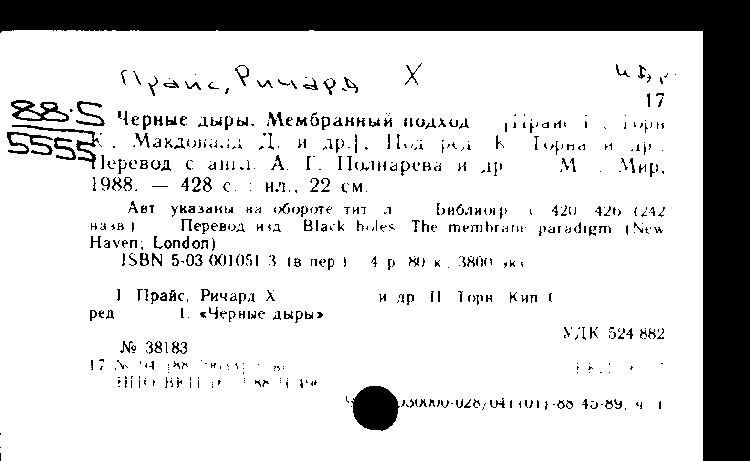 Прайс, Ричард Х
17
88-5
5555
Черные дыры. Мембранный подход [Прайс Торн
К., Макдональд Д. и др.]. Под ред. К. Торна и др.
Перевод с англ. А. Г. Полнарева и др М. Мир,
1988. — 428 с. : ил., 22 см.
Авт указаны на обороте тит л Библиогр с 420 426 (242
назв) Перевод изд Black holes The membrane paradigm (New
Haven; London)
ISBN 5-03 001051 3 (в пер) 4 р 80 к, 3800 экз
I Прайс, Ричард Х и др II Торн Кип
ред 1. «Черные дыры»
УДК 524 882
№ 38183
17 №
НПО ВКП